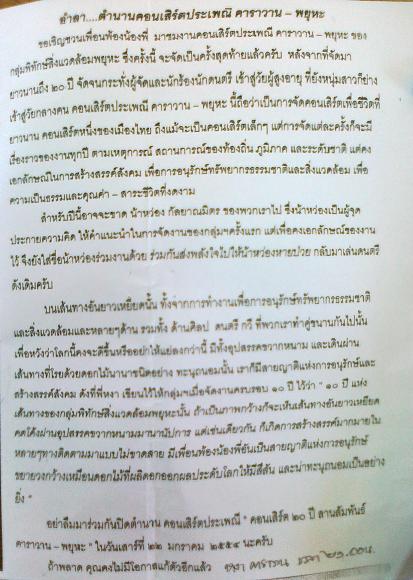 อำลา....ตำนานคอนเสิร์ตประเพณี คาราวาน – พยุหะ
ขอเชิญชวนเพื่อนพ้องน้องพี่ มาชมงานคอนเสิร์ตประเพณี คาราวาน – พยุหะ ของ
กลุ่มพิทักษ์สิ่งแวดล้อมพยุหะ ซึ่งครั้งนี้ จะจัดเป็นครั้งสุดท้ายแล้วครับ หลังจากที่จัดมา
ยาวนานถึง ๒๐ ปี จัดจนกระทั่งผู้จัดและนักร้องนักดนตรี เข้าสู่วัยผู้สูงอายุ ที่ยังหนุ่มสาวก็ย่าง
เข้าสู่วัยกลางคน คอนเสิร์ตประเพณี คาราวาน – พยุหะ นี้ถือว่าเป็นการจัดคอนเสิร์ตเพื่อชีวิตที่
ยาวนาน คอนเสิร์ตหนึ่งของเมืองไทย ถึงแม้จะเป็นคอนเสิร์ตเล็กๆ แต่การจัดแต่ละครั้งก็จะมี
เรื่องราวของงานทุกปี ตามเหตุการณ์ สถานการณ์ของท้องถิ่น ภูมิภาค และระดับชาติ แต่คง
เอกลักษณ์ในการสร้างสรรค์สังคม เพื่อการอนุรักษ์ทรัพยากรธรรมชาติและสิ่งแวดล้อม เพื่อ
ความเป็นธรรมและคุณค่า – สาระชีวิตที่งดงาม
สำหรับปีนี้อาจจะขาด น้าหว่อง กัลยาณมิตร ของพวกเราไป ซึ่งน้าหว่องเป็นผู้จุด
ประกายความคิด ให้คำแนะนำในการจัดงานของกลุ่มฯครั้งแรก แต่เพื่อคงเอกลักษณ์ของงาน
ไว้ จึงยังใส่ชื่อน้าหว่องร่วมงานด้วย ร่วมกันส่งพลังใจไปให้น้าหว่องหายป่วย กลับมาเล่นดนตรี
ดังเดิมครับ
บนเส้นทางอันยาวเหยียดนั้น ทั้งจากการทำงานเพื่อการอนุรักษ์ทรัพยากรธรรมชาติ
และสิ่งแวดล้อมและหลายๆด้าน รวมทั้ง ด้านศิลป ดนตรี กวี ที่พวกเราทำคู่ขนานกันไปนั้น
เพื่อหวังว่าโลกนี้คงจะดีขึ้นหรืออย่าให้แย่ลงกว่านี้ มีทั้งอุปสรรคขวากหนาม และเดินผ่าน
เส้นทางที่โรยด้วยดอกไม้นานาชนิดอย่าง ทะนุถนอมนั้น เราก็มีสายญาติแห่งการอนุรักษ์และ
สร้างสรรค์สังคม ดังที่พี่หงา เขียนไว้ให้กลุ่มฯเมื่อจัดงานครบรอบ ๑๐ ปี ไว้ว่า " ๑๐ ปี แห่ง
เส้นทางของกลุ่มพิทักษ์สิ่งแวดล้อมพยุหะนั้น ถ้าเป็นภาพกว้างก็จะเห็นเส้นทางอันยาวเหยียด
คดโค้งผ่านอุปสรรคขวากหนามมานานัปการ แต่เช่นเดียวกัน ก็เกิดการสร้างสรรค์มากมายใน
หลายๆทางติดตามมาแบบไม่ขาดสาย มีเพื่อนพ้องน้องพี่อันเป็นสายญาติแห่งการอนุรักษ์
ขยายวงกว้างเหมือนดอกไม้ที่ผลิดอกออกผลประดับโลกให้มีสีสัน และน่าทะนุถนอมเป็นอย่าง
ยิ่ง "
อย่าลืมมาร่วมกันปิดตำนาน คอนเสิร์ตประเพณี " คอนเสิร์ต ๒๐ ปี สานสัมพันธ์
คาราวาน – พยุหะ " ในวันเสาร์ที่ ๒๒ มกราคม ๒๕๕๔ นะครับ
ถ้าพลาด คุณคงไม่มีโอกาสแก้ตัวอีกแล้ว